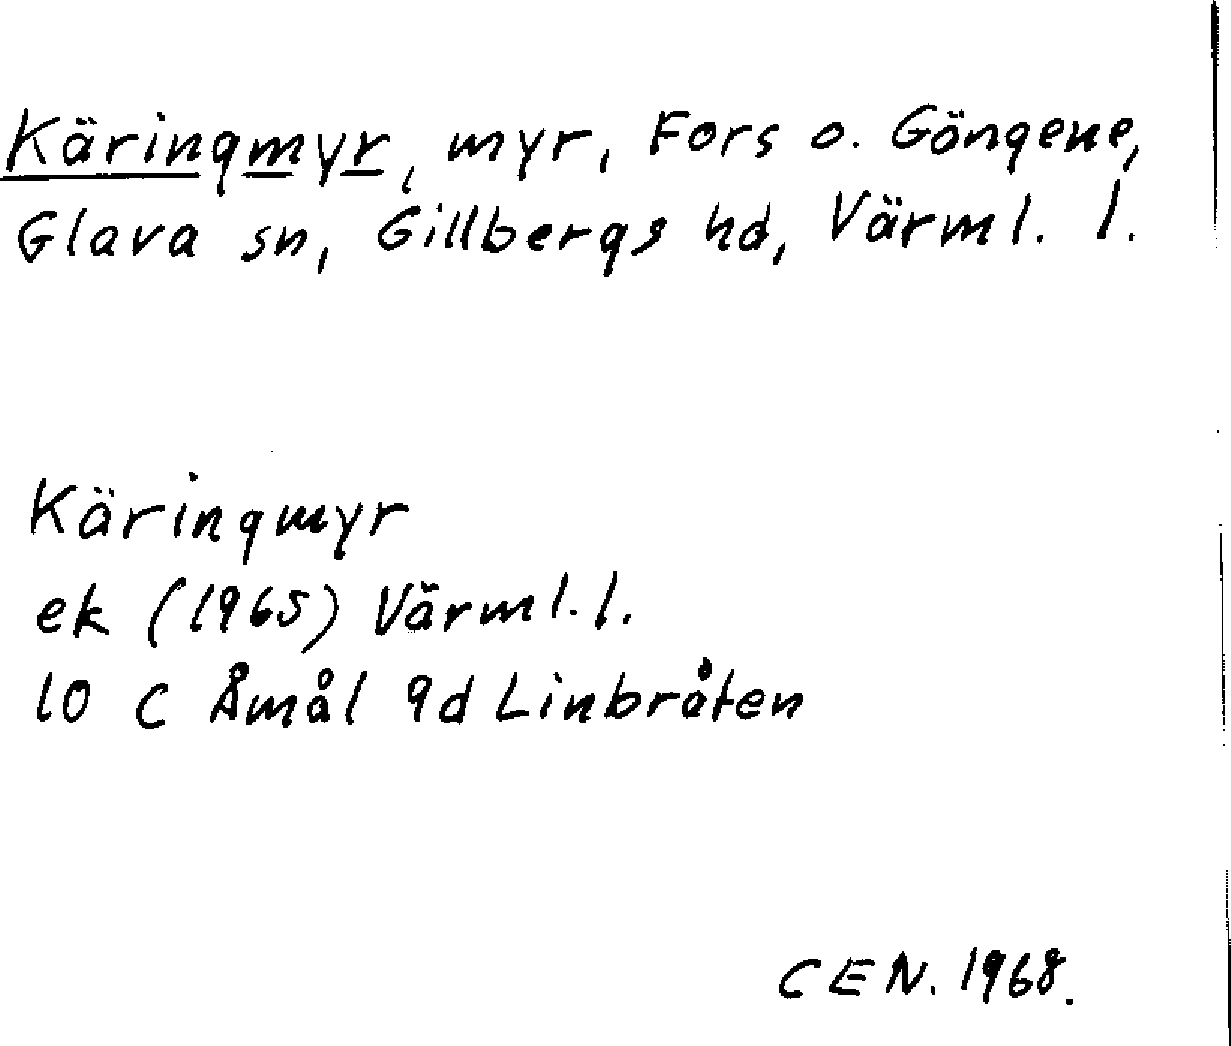 Käringmyr, myr, Fors o. Göngene,
Glava sn, Gillbergs hd, Värml. l.
Käringmyr
ek (1965) Värml. l.
10 C Åmål 9d Linbråten
CEN. 1968.